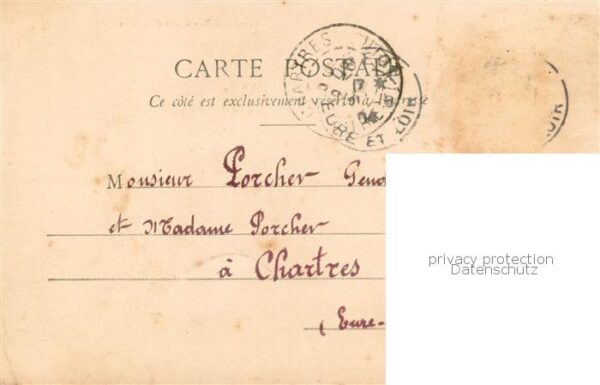 CARTE POSTALE
Ce côté est exclusivement réservé à l'adresse
CHARTRES
EURE ET LOIR
Monsieur Porcher
et Madame Porcher
à Chartres
(Eure-
privacy protection
Datenschutz